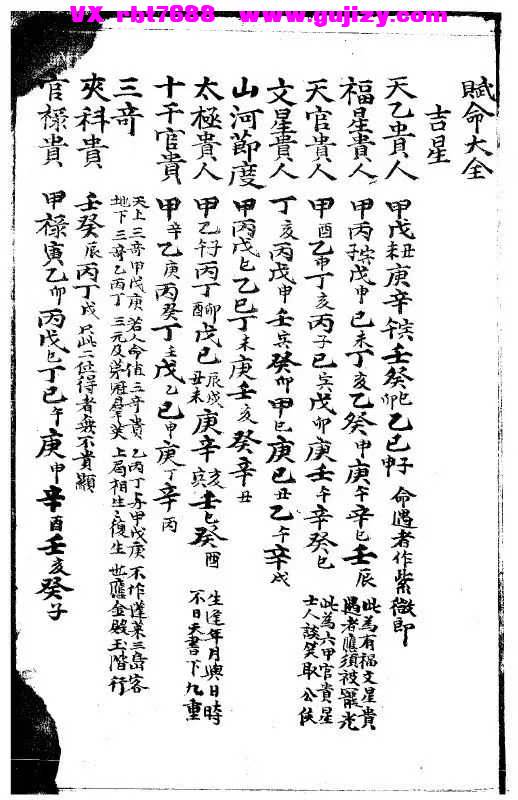 VX rbt7888 www.gujizy.com
賦命大全
吉星
天乙貴人 甲戊丑未庚辛午寅壬癸卯巳乙己申子 命遇者作紫微郎
福星貴人 甲丙子寅戊申己未丁亥乙癸甲庚午辛巳壬辰 此為有福文星貴 遇者應須被寵光
天官貴人 甲酉乙申丁亥丙子己寅戊卯庚壬午辛癸巳 此為六甲官貴星 士人談笑取公侯
文星貴人 丁亥丙戊申壬寅癸卯甲巳庚己丑乙午辛戌
山河節度 甲丙戊巳乙巳丁未庚壬亥癸辛丑
太極貴人 甲乙午子丙丁酉卯戊己辰戌丑未庚辛亥寅壬巳癸酉 生逢年月與日時 不日天書下九重
十干官貴 甲辛乙庚丙癸丁壬戊乙己甲庚丁辛丙
三奇 天上三奇甲戊庚 地下三奇乙丙丁 若人命值三奇貴 三元及第冠羣英 乙丙丁與甲戊庚 上局相生復生 不作蓬萊三島客 也應金殿玉階行
夾科貴 壬癸辰丙丁戌 只此二位得者無不貴顯
官祿貴 甲祿寅乙卯丙戊巳丁己午庚申辛酉壬亥癸子